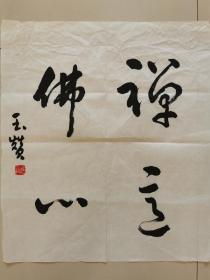 禅意
佛心
玉赞